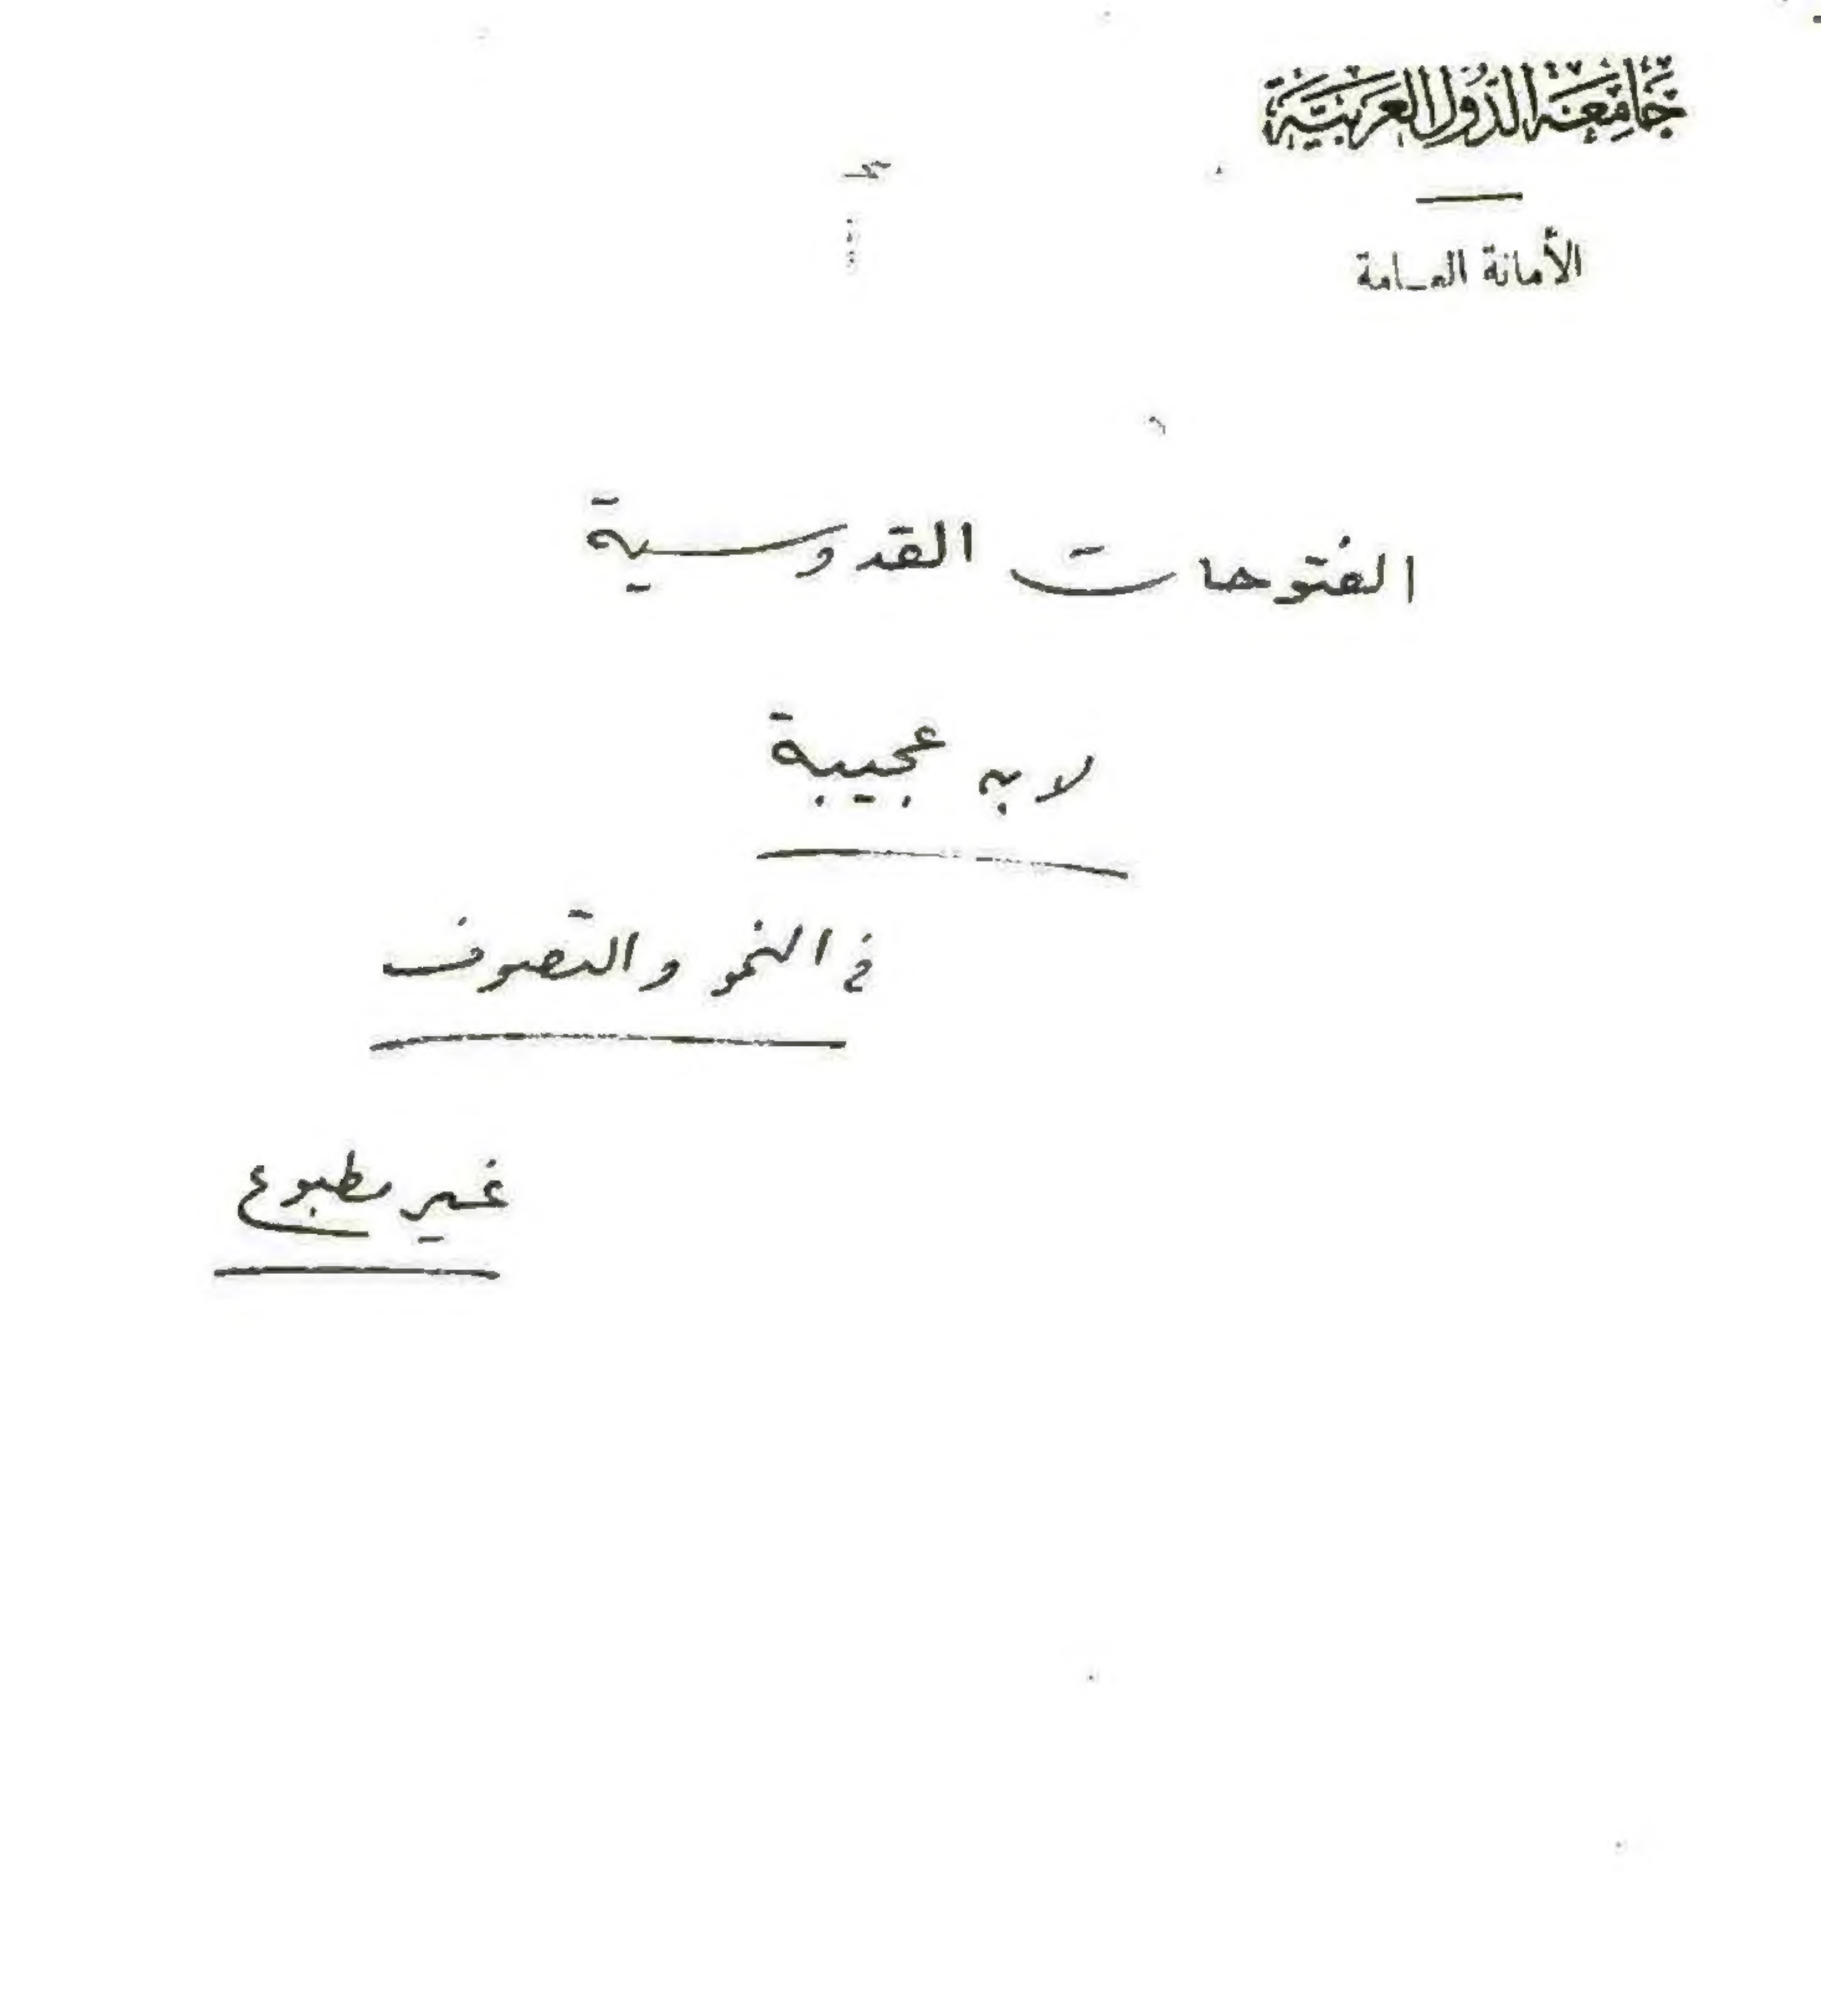 جامعة الدول العربية
الأمانة العامة
الفتوحات القدوسية
لابن عجيبة
في النحو والتصوف
غير مطبوع